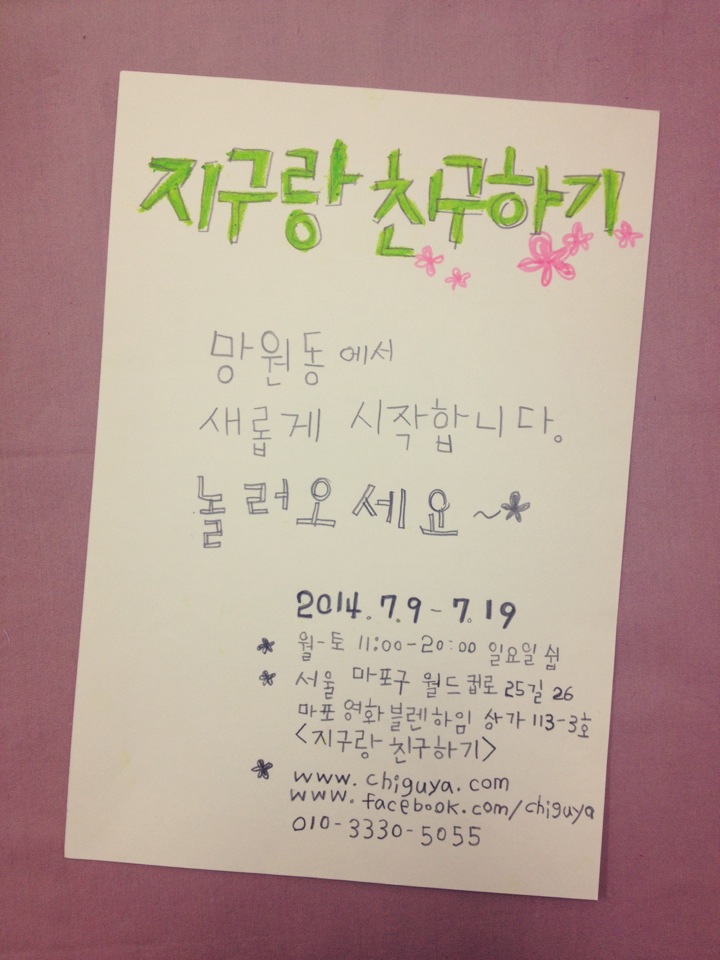 지구랑 친구하기
망원동에서
새롭게 시작합니다.
놀러오세요~*
2014. 7. 9 - 7. 19
* 월-토 11:00-20:00 일요일 쉽
* 서울 마포구 월드컵로 25길 26
마포 영화 블렌하임 상가 113-3호
<지구랑 친구하기>
* www.chiguya.com
www.facebook.com/chiguya
010-3330-5055